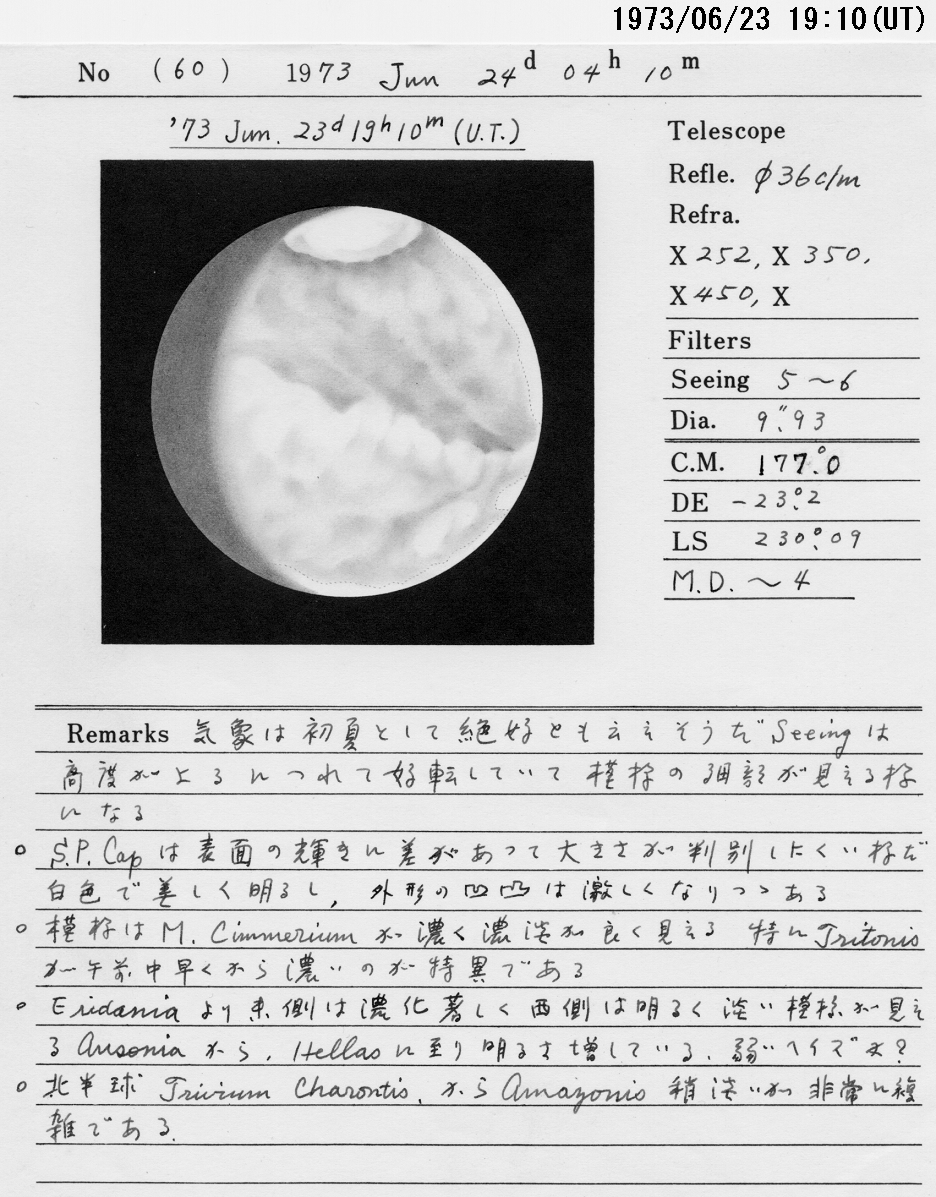 1973/06/23 19:10(UT)
No (60) 1973 Jun 24d 04h 10m
'73 Jun. 23d 19h 10m (U.T.)
Telescope
Refle. φ36c/m
Refra.
X 252, X 350,
X 450, X
Filters
Seeing 5~6
Dia. 9".93
C.M. 177°.0
DE -23°.2
LS 230°.09
M.D. ~4
Remarks 気象は初夏として絶好とも云えそうだ Seeingは
高度が上るにつれて好転していて模様の細部が見える様
になる
○ S.P. Capは表面の輝きに差があって大きさが判別しにくい様だ
白色で美しく明るし, 外形の凹凸は激しくなりつゝある
○ 模様はM. Cimmeriumが濃く濃淡が良く見える 特にTritonis
が午前中早くから濃いのが特異である
○ Eridaniaより東側は濃化著しく西側は明るく淡い模様が見え
るAusoniaから, Hellasに至り明るさ増している、弱いヘイズか?
○ 北半球 Trivium Charontis, からAmazonis 稍淡いが非常に複
雑である.